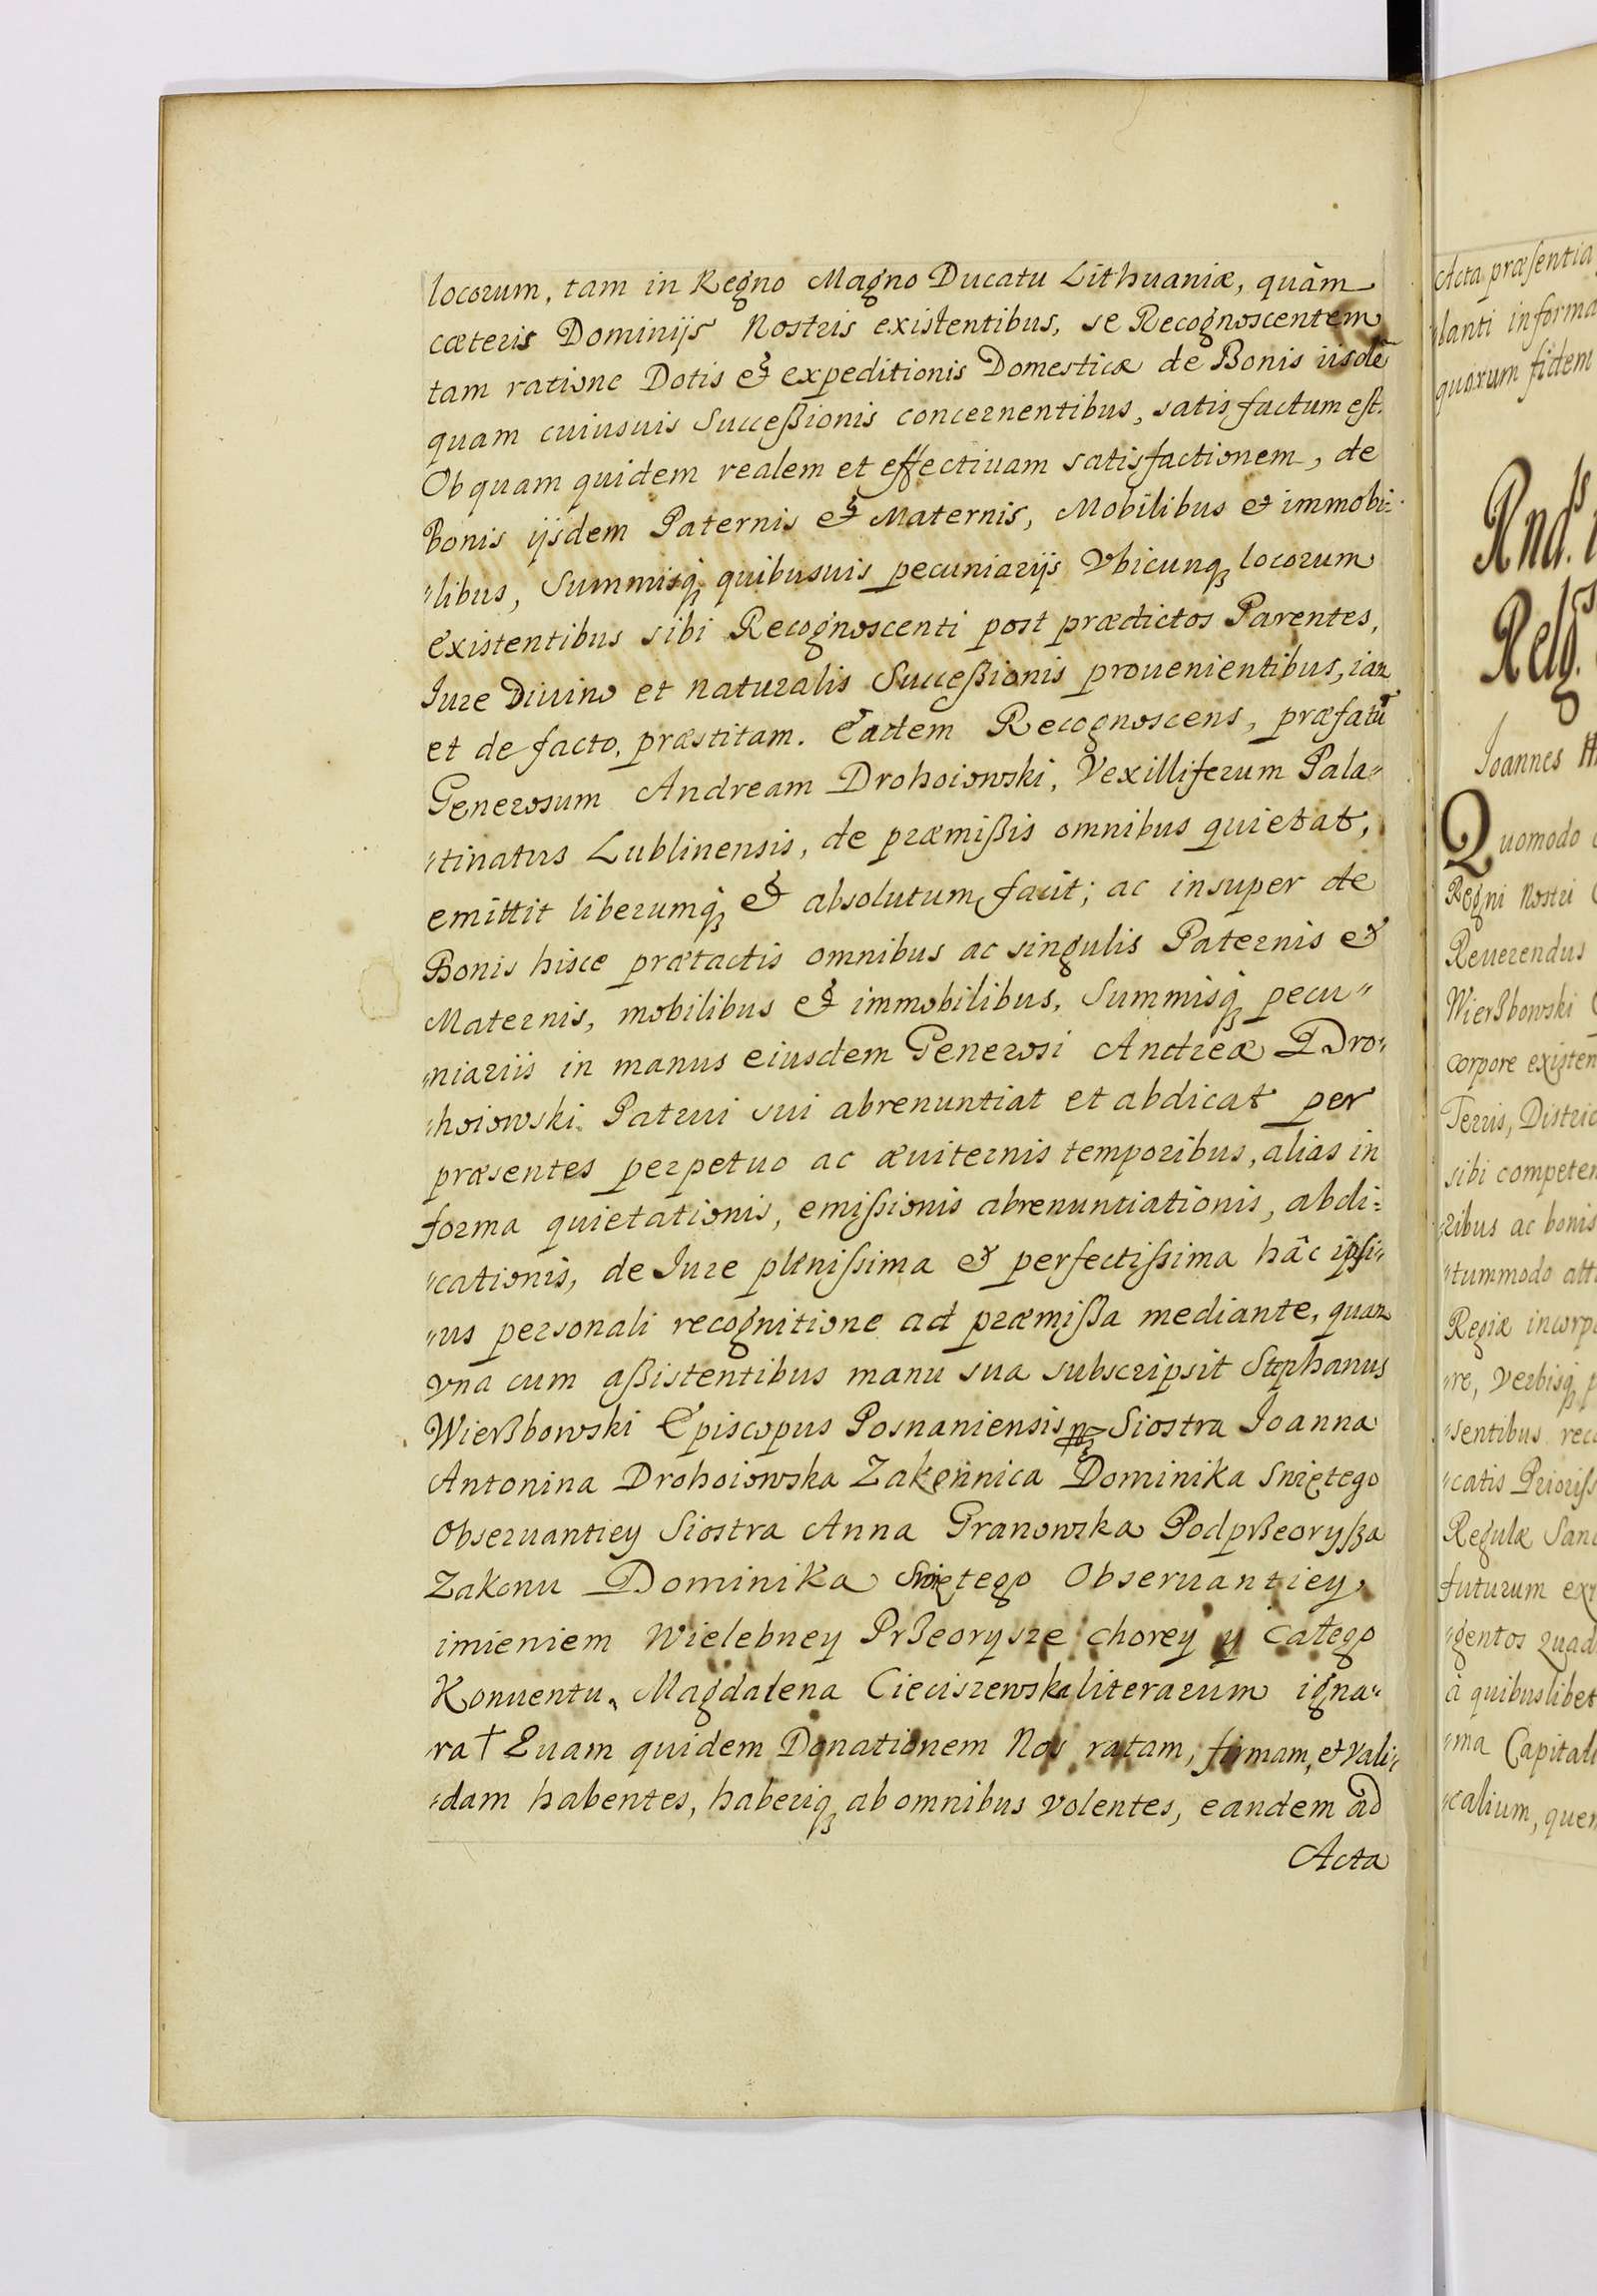 locorum, tam in Regno Magno Ducatu Lithuaniæ, quàm
cæteris Dominijs Nostris existentibus, se Recognoscentem
tam ratione Dotis & expeditionis Domesticæ de Bonis iisdē
quam cuiusuis Succeßionis concernentibus, satis factum est.
Ob quam quidem realem et effectiuam satisfactionem, de
Bonis ijsdem Paternis & Maternis, Mobilibus et immobi-
"libus, Summisq; quibusuis pecuniarijs Vbicunq; locorum
Existentibus sibi Recognoscenti post prædictos Parentes,
Iure Diuino et naturalis Succeßionis prouenientibus, iam
et de facto, præstitam. Eadem Recognoscens, præfatū
Generosum Andream Drohoiowski, Vexilliferum Pala"
"tinatus Lublinensis, de præmißis omnibus quietat,
emittit liberumq; & absolutum facit; ac insuper de
Bonis hisce prætactis omnibus ac singulis Paternis &
Maternis, mobilibus & immobilibus, Summisq; pecu"
"niariis in manus eiusdem Generosi Andreæ Dro"
"hoiowski Patrui sui abrenuntiat et abdicat per
præsentes perpetuo ac æuiternis temporibus, alias in
forma quietationis, emissionis abrenuntiationis, abdi=
"cationis, de Iure plenissima & perfectissima hâc ipsi"
"us personali recognitione ad præmißa mediante, quam
vna cum aßistentibus manu sua subscripsit Stephanus
Wierßbowski Episcopus Posnaniensis Siostra Ioanna
Antonina Drohoiowska Zakonnica Dominika Swiętego
Obseruantiey Siostra Anna Granowska Podprßeoryßa
Zakonu Dominika Swiętego Obseruantiey,
imieniem Wielebney Prßeorysze chorey y całego
Konuentu, Magdalena Cieciszewska literarum igna"
"ra † Quam quidem Donationem Nos ratam, firmam, et vali"
"dam habentes, haberiq; ab omnibus volentes, eandem ad
Acta
Acta præsentia
"lanti in forma
quorum fidem
Rnd.s
Relg.s
Joannes
Quomodo
Regni Nostri
Reuerendus
Wierßbowski
corpore existen
Terris, Distric
sibi competen
"ribus ac bonis
"tummodo atti
Regiæ incorpo
"re, Verbisq; p
"sentibus reco
"catis Prioriss
Regulæ Sanc
futurum ex
"gentos Quad
à quibuslibet
"ma Capitali
"calium, quem